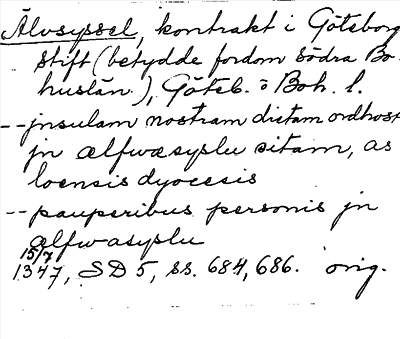 Älvsyssel, kontrakt i Göteborgs
stift (betydde fordom södra Bo-
huslän), Göteb. o Boh. l.
-- jnsulam nostram dictam ordhost
jn ælfwæsyslu sitam, as
loensis dyocesis
-- pauperibus personis jn
ælfwasyslu
15/7
1347, SD 5, ss. 684, 686. orig.